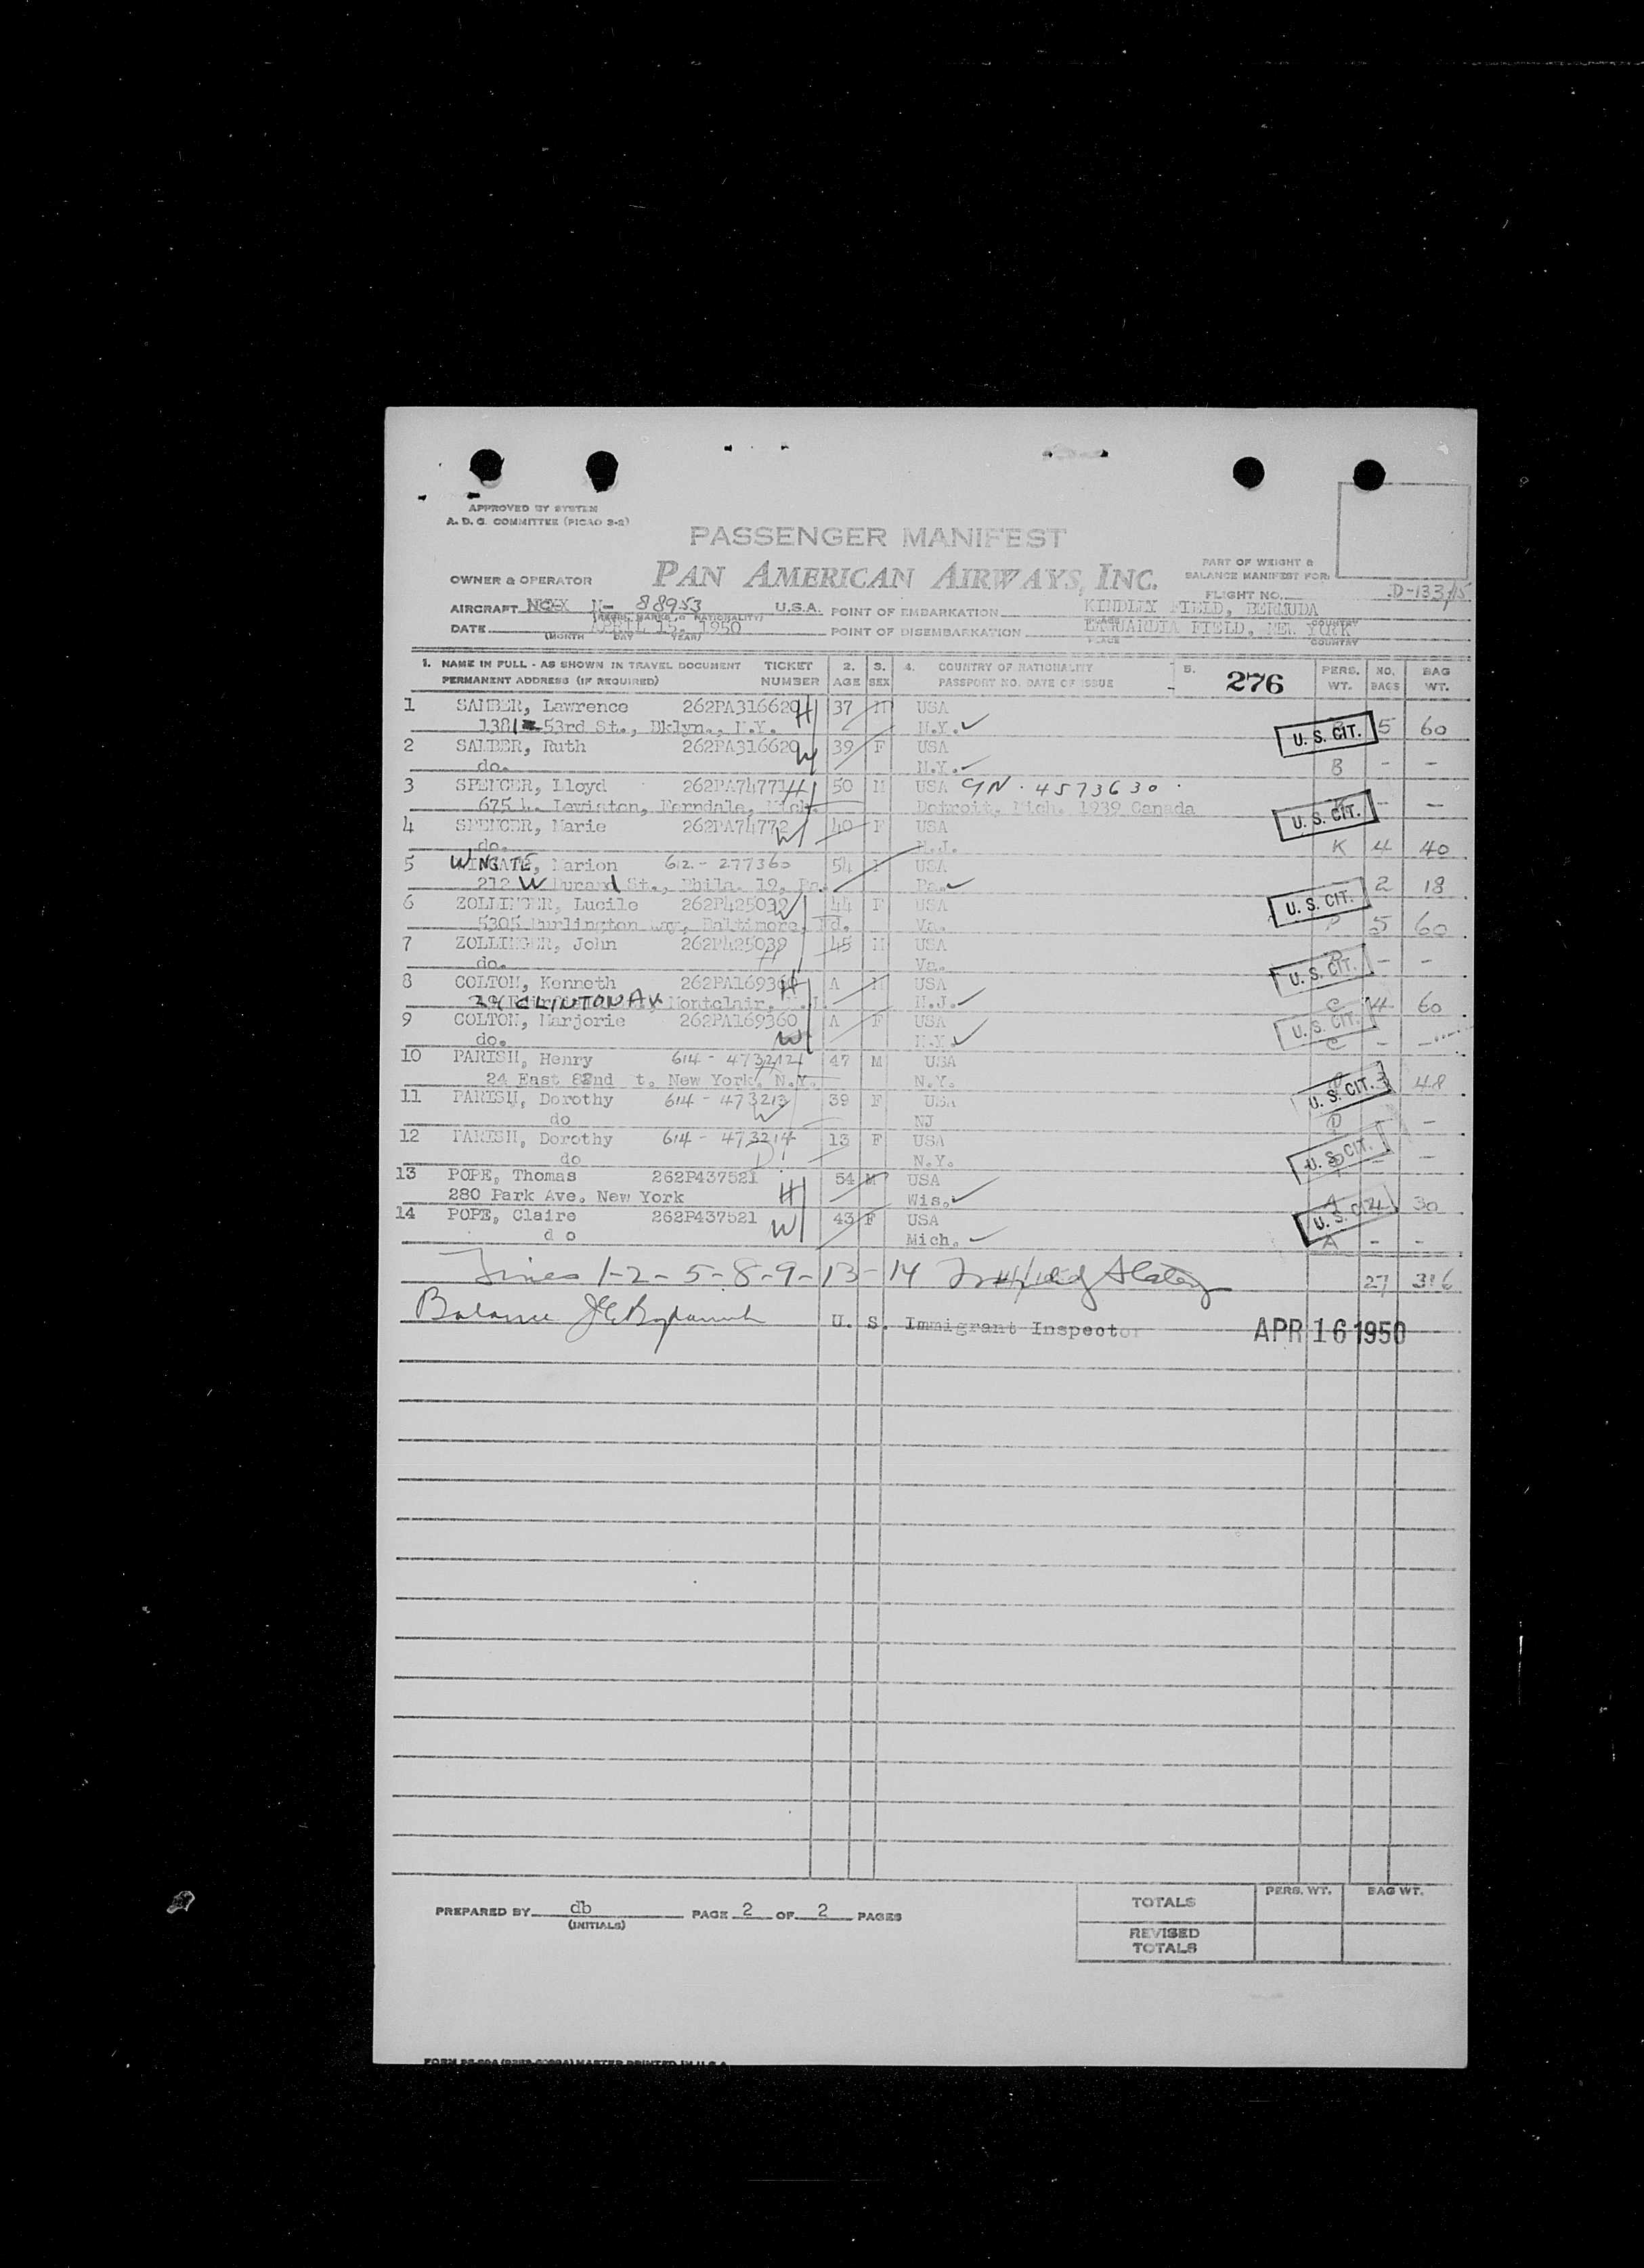 APPROVED BY SYSTEM
A. D. C. COMMITTEE (PICAO 3-2)
PASSENGER MANIFEST
OWNER & OPERATOR PAN AMERICAN AIRWAYS, INC.
PART OF WEIGHT &
BALANCE MANIFEST FOR:
FLIGHT NO. D-133/15
AIRCRAFT N- 88953 U.S.A. POINT OF EMBARKATION KINDLEY FIELD, BERMUDA
(REGIS. MARKS & NATIONALITY) PLACE COUNTRY
DATE APRIL 15, 1950 POINT OF DISEMBARKATION LAGUARDIA FIELD, NEW YORK
(MONTH DAY YEAR) PLACE COUNTRY
1. NAME IN FULL - AS SHOWN IN TRAVEL DOCUMENT TICKET 2. 3. 4. COUNTRY OF NATIONALITY 5. 276 PERS. NO. BAG
PERMANENT ADDRESS (IF REQUIRED) NUMBER AGE SEX PASSPORT NO. DATE OF ISSUE WT. BAGS WT.
1 SAMBER, Lawrence 262PA316620 H 37 M USA
1381 53rd St., Bklyn., N.Y. N.Y. U. S. CIT. 5 60
2 SAMBER, Ruth 262PA316620 W 39 F USA
do. N.Y. B - -
3 SPENCER, Lloyd 262PA74771 H 50 M USA CN. 4573630
675 L. Lewiston, Ferndale, Mich. Detroit, Mich. 1939 Canada U. S. CIT. - -
4 SPENCER, Marie 262PA74772 W 40 F USA
do. N.J. K 4 40
5 WINGATE, Marion 612-277360 54 F USA
212 W Durand St., Phila. 19, Pa. Pa. 2 18
6 ZOLLINGER, Lucile 262P425039 W 44 F USA U. S. CIT.
5305 Purlington Way, Baltimore, Md. Va. 5 60
7 ZOLLINGER, John 262P425039 H 45 M USA
do. Va. U. S. CIT. - -
8 COLTON, Kenneth 262PA169360 H A M USA
CLINTON AV, Montclair, N.J. N.J. C 4 60
9 COLTON, Marjorie 262PA169360 A F USA U. S. CIT.
do. W N.Y. C - -
10 PARISH, Henry 614-473212 H 47 M USA
24 East 82nd t. New York, N.Y. N.Y. U. S. CIT. 3 48
11 PARISH, Dorothy 614-473213 39 F USA
do W NJ P -
12 PARISH, Dorothy 614-473214 13 F USA
do D N.Y. U. S. CIT. - -
13 POPE, Thomas 262P437521 54 M USA
280 Park Ave. New York H Wis. A 4 30
14 POPE, Claire 262P437521 W 43 F USA U. S. CIT.
d o Mich. A - -
Lines 1-2-5-8-9-13-14 27 316
Balance U. S. Immigrant Inspector APR 16 1950
PREPARED BY db PAGE 2 OF 2 PAGES
(INITIALS)
PERS. WT. BAG WT.
TOTALS
REVISED
TOTALS